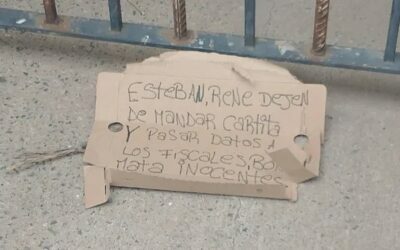 ESTEBAN, RENE DEJEN
DE MANDAR CARTITA
Y PASAR DATOS A
LOS FISCALES,
MATA INOCENTES